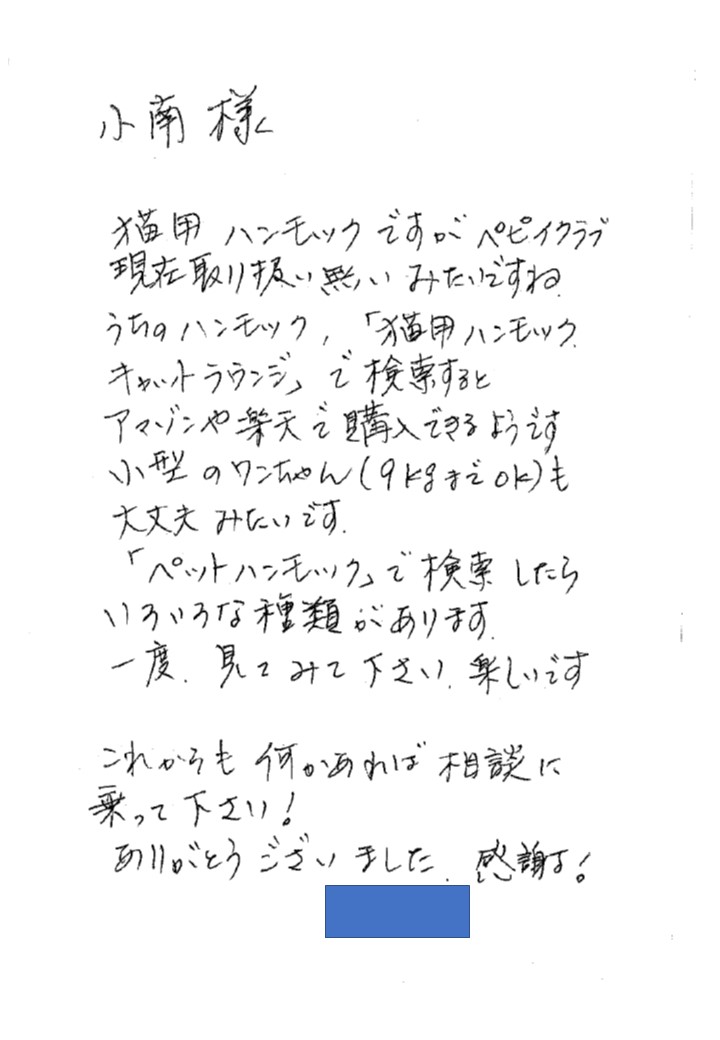 小南 様
猫用 ハンモック ですが ペピイクラブ
現在取り扱い無い みたいですね.
うちの ハンモック, 「猫用ハンモック.
キャットラウンジ」 で 検索すると
アマゾンや楽天で購入できるようです
小型 のワンちゃん(9kgまでok)も
大丈夫 みたいです.
「ペットハンモック」で 検索 したら
いろいろな種類があります.
一度. 見て みて 下さい. 楽しいです
これからも 何かあれば 相談に
乗って 下さい!
ありがとう ござい ました. 感謝す!